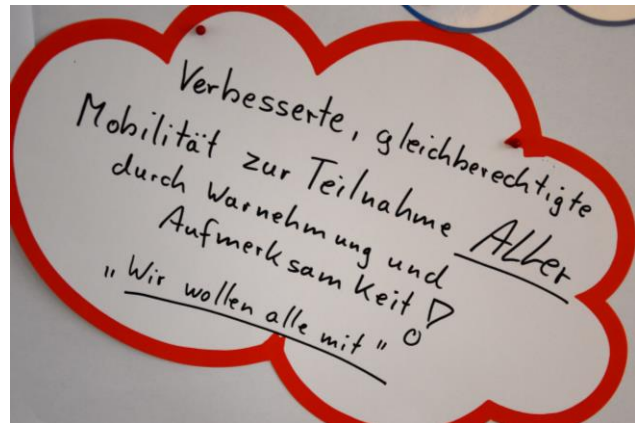 Verbesserte, gleichberechtigte
Mobilität zur Teilnahme Aller
durch Warnehmung und
Aufmerksamkeit!
„Wir wollen alle mit"